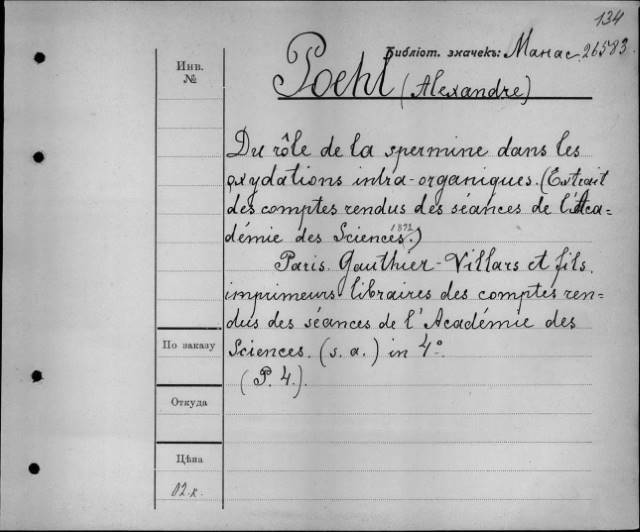 134
Библіот. значекъ: Манас. 26583.
Инв.
№
Poehl
(Alexandre)
Du rôle de la spermine dans les
oxydations intra-organiques. (Extrait
des comptes rendus des séances de l'Aca=
démie des Sciences.)
Paris. Gauthier-Villars et fils.
imprimeurs libraires des comptes ren=
dus des séances de l'Académie des
Sciences. (s. a.) in 4°.
(P. 4.).
По заказу
Откуда
Цѣна
02 к.